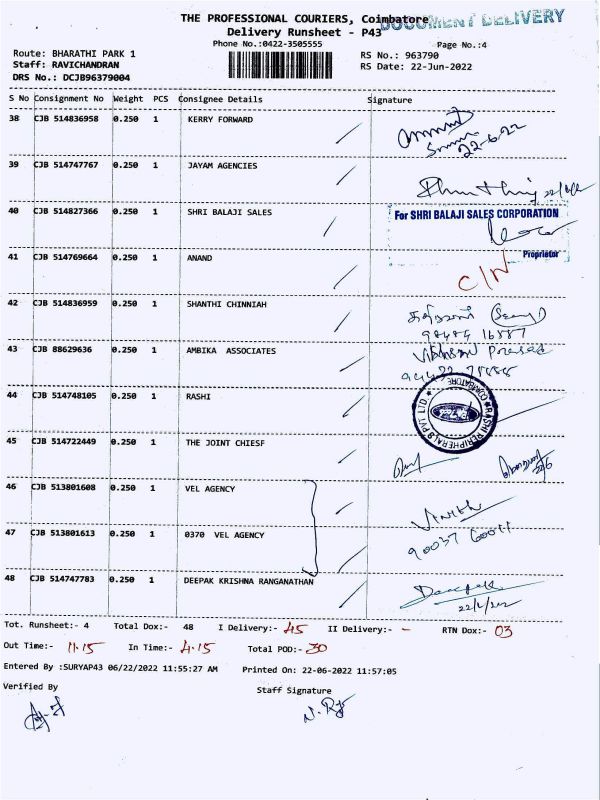 THE PROFESSIONAL COURIERS, Coimbatore
DOCUMENT DELIVERY
Delivery Runsheet - P43
Phone No.:0422-3505555
Page No.:4
Route: BHARATHI PARK 1
RS No.: 963790
Staff: RAVICHANDRAN
RS Date: 22-Jun-2022
DRS No.: DCJB96379004
S No Consignment No Weight PCS Consignee Details Signature
38 CJB 514836958 0.250 1 KERRY FORWARD
22-6-22
39 CJB 514747767 0.250 1 JAYAM AGENCIES
40 CJB 514827366 0.250 1 SHRI BALAJI SALES
For SHRI BALAJI SALES CORPORATION
Proprietor
41 CJB 514769664 0.250 1 ANAND
C/N
42 CJB 514836959 0.250 1 SHANTHI CHINNIAH
43 CJB 88629636 0.250 1 AMBIKA ASSOCIATES
44 CJB 514748105 0.250 1 RASHI
RASHI PERIPHERALS PVT LTD
COIMBATORE
45 CJB 514722449 0.250 1 THE JOINT CHIESF
46 CJB 513801608 0.250 1 VEL AGENCY
47 CJB 513801613 0.250 1 0370 VEL AGENCY
90037 60011
48 CJB 514747783 0.250 1 DEEPAK KRISHNA RANGANATHAN
Deepak
Tot. Runsheet:- 4 Total Dox:- 48 I Delivery:- 45 II Delivery:- - RTN Dox:- 03
Out Time:- 11.15 In Time:- 4.15 Total POD:- 30
Entered By :SURYAP43 06/22/2022 11:55:27 AM Printed On: 22-06-2022 11:57:05
Verified By
Staff Signature